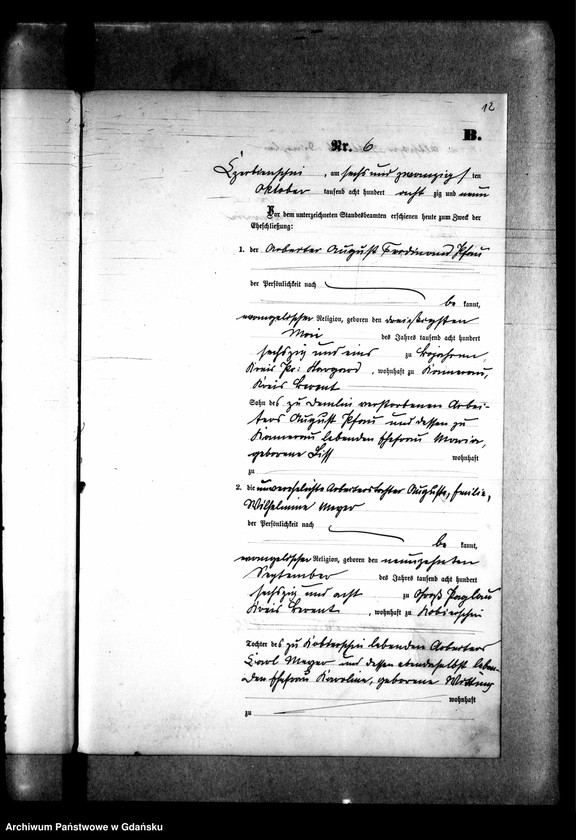 12
B.
Nr. 6
, am sechs und zwanzigsten
Oktober tausend acht hundert acht zig und neun
Vor dem unterzeichneten Standesbeamten erschienen heute zum Zweck der
Eheschließung:
1. der Arbeiter August Ferdinand Pfau
der Persönlichkeit nach
be kannt,
evangelischer Religion, geboren den dreißigsten
Mai des Jahres tausend acht hundert
sechszig und eins zu
Kreis Pr: Stargard, wohnhaft zu Kamerau,
Kreis Berent
Sohn des zu Demlin verstorbenen Arbei-
ters August Pfau und dessen zu
Kamerau lebenden Ehefrau Maria,
geborene wohnhaft
zu
2. die unverehelichte Arbeiterstochter Auguste, Emilie,
Wilhelmine Meyer
der Persönlichkeit nach
be kannt,
evangelischer Religion, geboren den neunzehnten
September des Jahres tausend acht hundert
sechszig und acht zu Groß Paglau
Kreis Berent, wohnhaft zu
Tochter des zu lebenden Arbeiters
Carl Meyer und dessen ebendaselbst leben-
den Ehefrau Karoline, geborene
wohnhaft
zu
Archiwum Państwowe w Gdańsku